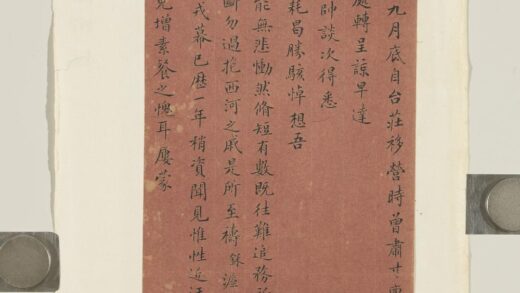 九月底自台莊移營時曾肅寸
處轉呈諒早達
帥談次得悉
耗曷勝駭悼想吾
能無悲慟然脩短有數既往難追務
斷勿過抱西河之戚是所至禱銤
戎幕已歷一年稍資聞見惟性近
增素餐之愧耳屢蒙